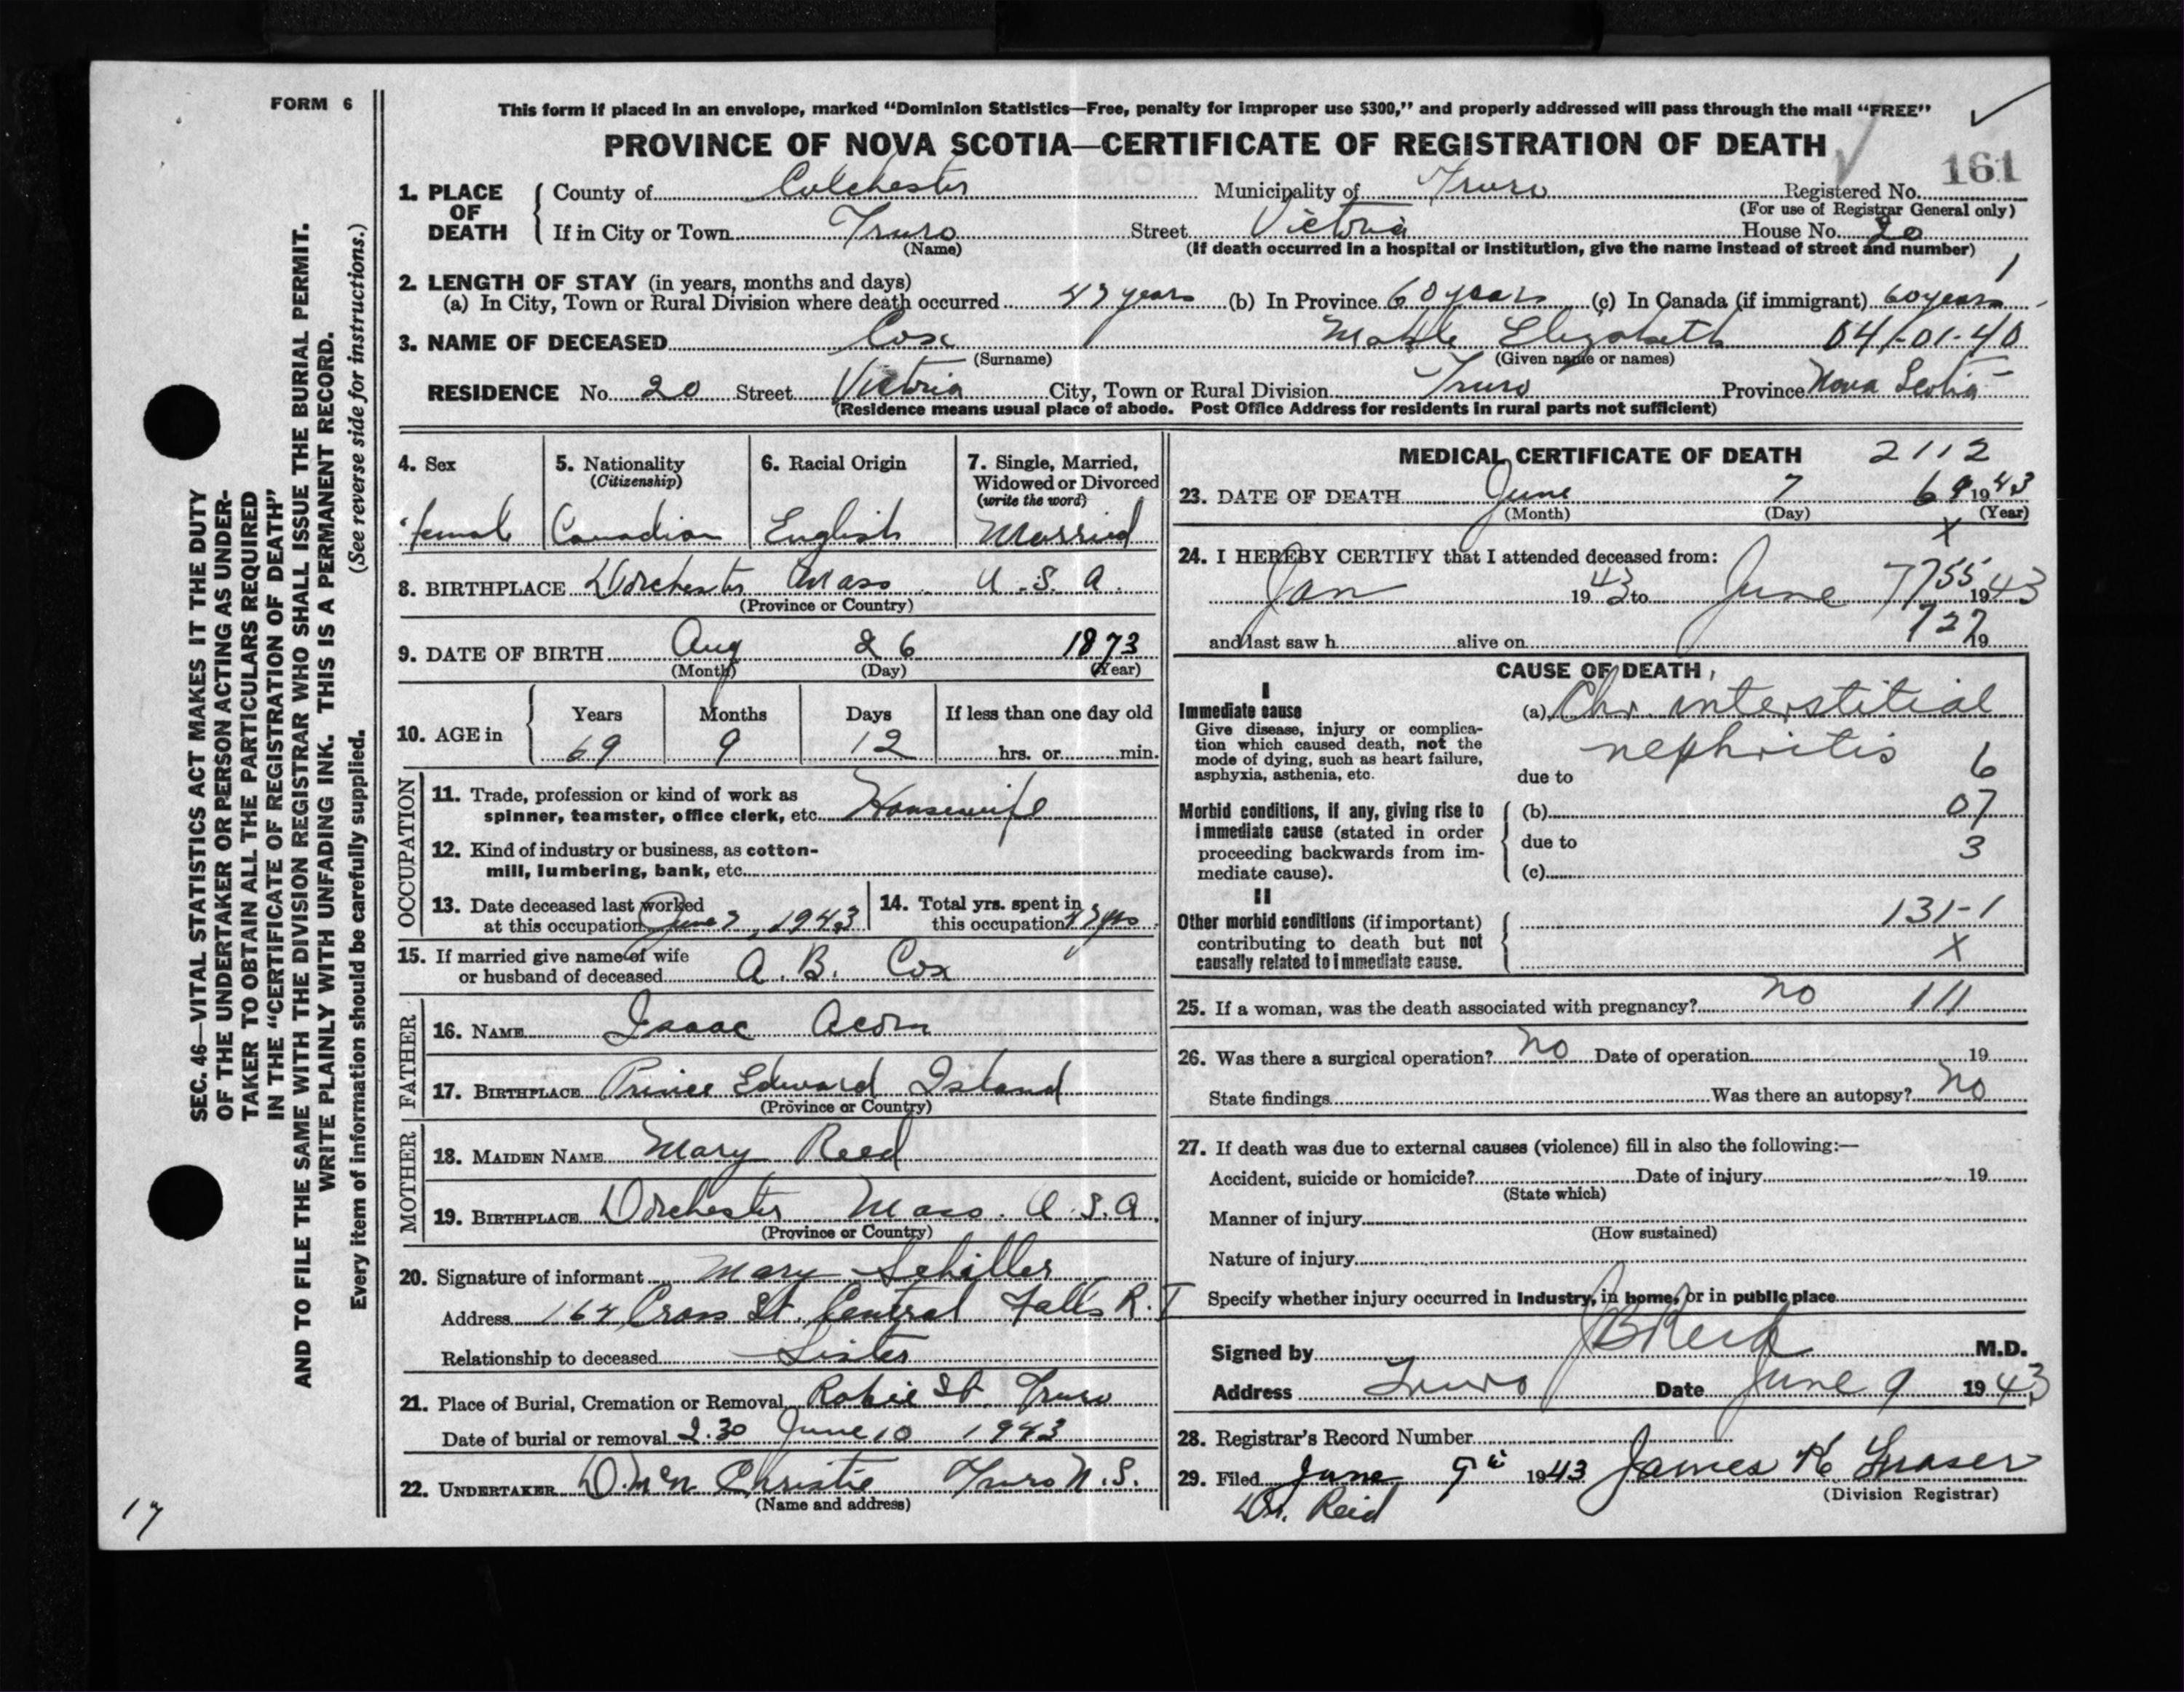 FORM 6
This form if placed in an envelope, marked “Dominion Statistics—Free, penalty for improper use $300,” and properly addressed will pass through the mail “FREE”
PROVINCE OF NOVA SCOTIA—CERTIFICATE OF REGISTRATION OF DEATH
161
1. PLACE OF DEATH
County of Colchester Municipality of Truro Registered No.
(For use of Registrar General only)
If in City or Town Truro Street Victoria House No. 20
(Name) (If death occurred in a hospital or institution, give the name instead of street and number)
1
2. LENGTH OF STAY (in years, months and days)
(a) In City, Town or Rural Division where death occurred years (b) In Province 60 years (c) In Canada (if immigrant) 60 years
3. NAME OF DECEASED Cox Elizabeth 04-01-40
(Surname) (Given name or names)
RESIDENCE No. 20 Street Victoria City, Town or Rural Division Truro Province Nova Scotia
(Residence means usual place of abode. Post Office Address for residents in rural parts not sufficient)
4. Sex
female
5. Nationality
(Citizenship)
Canadian
6. Racial Origin
English
7. Single, Married,
Widowed or Divorced
(write the word)
Married
8. BIRTHPLACE Dorchester Mass. U.S.A.
(Province or Country)
9. DATE OF BIRTH Aug 26 1873
(Month) (Day) (Year)
10. AGE in
Years Months Days If less than one day old
69 9 12 hrs. or min.
OCCUPATION
11. Trade, profession or kind of work as
spinner, teamster, office clerk, etc. Housewife
12. Kind of industry or business, as cotton-
mill, lumbering, bank, etc.
13. Date deceased last worked
at this occupation June 7, 1943
14. Total yrs. spent in
this occupation yrs
15. If married give name of wife
or husband of deceased A. B. Cox
FATHER
16. NAME Isaac Acorn
17. BIRTHPLACE Prince Edward Island
(Province or Country)
MOTHER
18. MAIDEN NAME Mary Reed
19. BIRTHPLACE Dorchester Mass. U.S.A.
(Province or Country)
20. Signature of informant Mary Schiller
Address Cross St. Central Falls R.I
Relationship to deceased Sister
21. Place of Burial, Cremation or Removal Robie St Truro
Date of burial or removal 2.30 June 10 1943
22. UNDERTAKER Christie Truro N.S.
(Name and address)
MEDICAL CERTIFICATE OF DEATH 2112
23. DATE OF DEATH June 7 69 1943
(Month) (Day) (Year)
X
24. I HEREBY CERTIFY that I attended deceased from:
Jan 1943 to June 7 755 1943
727
and last saw h alive on 19
CAUSE OF DEATH
I
Immediate cause
Give disease, injury or complica-
tion which caused death, not the
mode of dying, such as heart failure,
asphyxia, asthenia, etc.
(a) Chr. interstitial
nephritis
due to 6
Morbid conditions, if any, giving rise to
immediate cause (stated in order
proceeding backwards from im-
mediate cause).
(b) 07
due to 3
(c)
II
Other morbid conditions (if important)
contributing to death but not
causally related to immediate cause.
131-1
X
25. If a woman, was the death associated with pregnancy? no 111
26. Was there a surgical operation? No Date of operation 19
State findings Was there an autopsy? No
27. If death was due to external causes (violence) fill in also the following:—
Accident, suicide or homicide? Date of injury 19
(State which)
Manner of injury
(How sustained)
Nature of injury
Specify whether injury occurred in industry, in home, or in public place
Signed by J B Reid M.D.
Address Truro Date June 9 1943
28. Registrar's Record Number
29. Filed June 9th 1943 James K Fraser
(Division Registrar)
Dr. Reid
SEC. 46—VITAL STATISTICS ACT MAKES IT THE DUTY
OF THE UNDERTAKER OR PERSON ACTING AS UNDER-
TAKER TO OBTAIN ALL THE PARTICULARS REQUIRED
IN THE “CERTIFICATE OF REGISTRATION OF DEATH”
AND TO FILE THE SAME WITH THE DIVISION REGISTRAR WHO SHALL ISSUE THE BURIAL PERMIT.
WRITE PLAINLY WITH UNFADING INK. THIS IS A PERMANENT RECORD.
Every item of information should be carefully supplied. (See reverse side for instructions.)
17